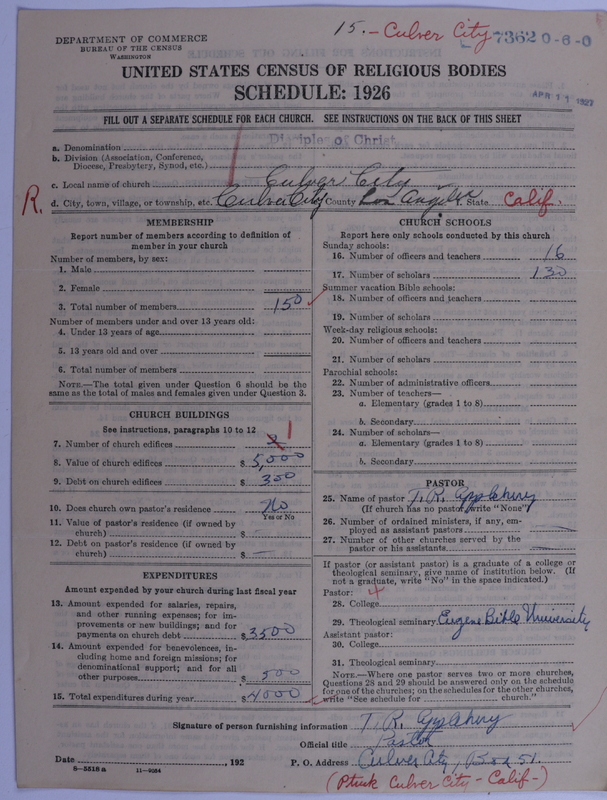 15. - Culver City
7362 0-6-0
DEPARTMENT OF COMMERCE
BUREAU OF THE CENSUS
WASHINGTON
APR 11 1927
UNITED STATES CENSUS OF RELIGIOUS BODIES
SCHEDULE: 1926
FILL OUT A SEPARATE SCHEDULE FOR EACH CHURCH. SEE INSTRUCTIONS ON THE BACK OF THIS SHEET
a. Denomination Disciples of Christ
b. Division (Association, Conference,
Diocese, Presbytery, Synod, etc.)
c. Local name of church Culver City
R. d. City, town, village, or township, etc. Culver City County Los Angeles State Calif.
MEMBERSHIP
Report number of members according to definition of
member in your church
Number of members, by sex:
1. Male
2. Female
3. Total number of members 150
Number of members under and over 13 years old:
4. Under 13 years of age
5. 13 years old and over
6. Total number of members
NOTE.—The total given under Question 6 should be the
same as the total of males and females given under Question 3.
CHURCH BUILDINGS
See instructions, paragraphs 10 to 12
7. Number of church edifices 2 1
8. Value of church edifices $ 5,000
9. Debt on church edifices $ 350
10. Does church own pastor's residence No
Yes or No
11. Value of pastor's residence (if owned by
church) $ —
12. Debt on pastor's residence (if owned by
church) $ —
EXPENDITURES
Amount expended by your church during last fiscal year
13. Amount expended for salaries, repairs,
and other running expenses; for im-
provements or new buildings; and for
payments on church debt $ 3500
14. Amount expended for benevolences, in-
cluding home and foreign missions; for
denominational support; and for all
other purposes $ 500
15. Total expenditures during year $ 4000
CHURCH SCHOOLS
Report here only schools conducted by this church
Sunday schools:
16. Number of officers and teachers 16
17. Number of scholars 130
Summer vacation Bible schools:
18. Number of officers and teachers
19. Number of scholars
Week-day religious schools:
20. Number of officers and teachers
21. Number of scholars
Parochial schools:
22. Number of administrative officers
23. Number of teachers—
a. Elementary (grades 1 to 8)
b. Secondary
24. Number of scholars—
a. Elementary (grades 1 to 8)
b. Secondary
PASTOR
25. Name of pastor T. R. Applebury
(If church has no pastor, write "None")
26. Number of ordained ministers, if any, em-
ployed as assistant pastors —
27. Number of other churches served by the
pastor or his assistants —
If pastor (or assistant pastor) is a graduate of a college or
theological seminary, give name of institution below. (If
not a graduate, write "No" in the space indicated.)
Pastor:
28. College
29. Theological seminary Eugene Bible University
Assistant pastor:
30. College
31. Theological seminary
NOTE.—Where one pastor serves two or more churches,
Questions 28 and 29 should be answered only on the schedule
for one of the churches; on the schedules for the other churches,
write "See schedule for church."
Signature of person furnishing information T. R. Applebury
Official title Pastor
Date 192 P. O. Address Culver City, Box 51.
8-5518 a 11-9034
(Ptink Culver City - Calif-)